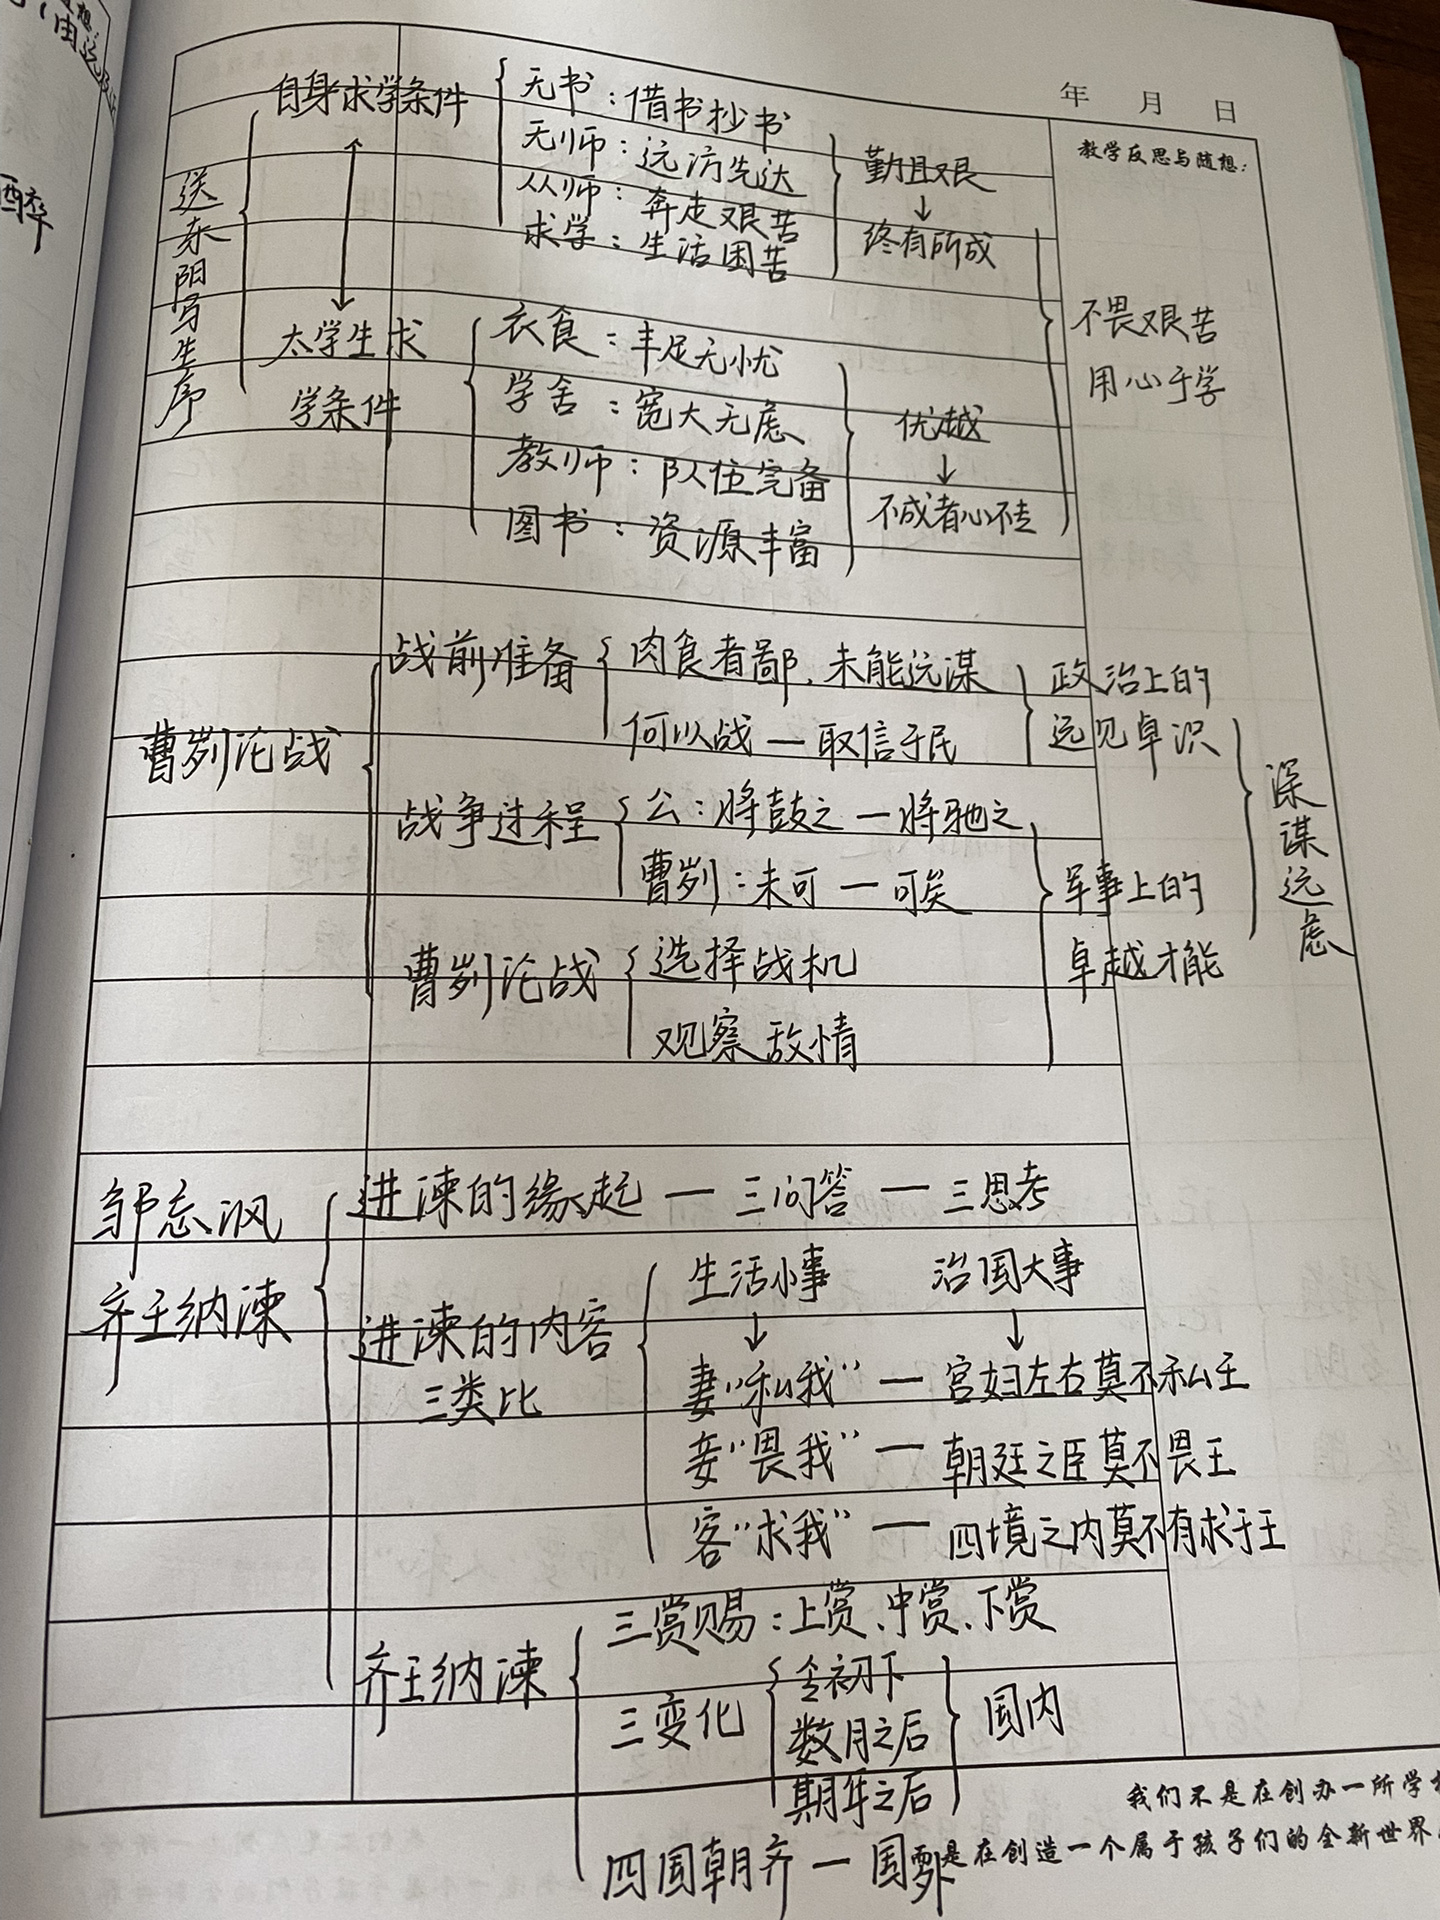 年 月 日
教学反思与随想：
送东阳马生序
自身求学条件
无书：借书抄书
无师：远访先达
从师：奔走艰苦
求学：生活困苦
勤且艰
↓
终有所成
太学生求
学条件
衣食：丰足无忧
学舍：宽大无虑
教师：队伍完备
图书：资源丰富
优越
↓
不成者心不专
不畏艰苦
用心于学
曹刿论战
战前准备
肉食者鄙、未能远谋
何以战—取信于民
政治上的
远见卓识
战争过程
公：将鼓之—将驰之
曹刿：未可—可矣
曹刿论战
选择战机
观察敌情
军事上的
卓越才能
深谋远虑
邹忌讽
齐王纳谏
进谏的缘起—三问答—三思考
进谏的内容
三类比
生活小事 治国大事
↓ ↓
妻“私我”—宫妇左右莫不私王
妾“畏我”—朝廷之臣莫不畏王
客“求我”—四境之内莫不有求于王
齐王纳谏
三赏赐：上赏、中赏、下赏
三变化
令初下
数月之后
期年之后
国内
四国朝齐—国外
我们不是在创办一所学
是在创造一个属于孩子们的全新世界
醉